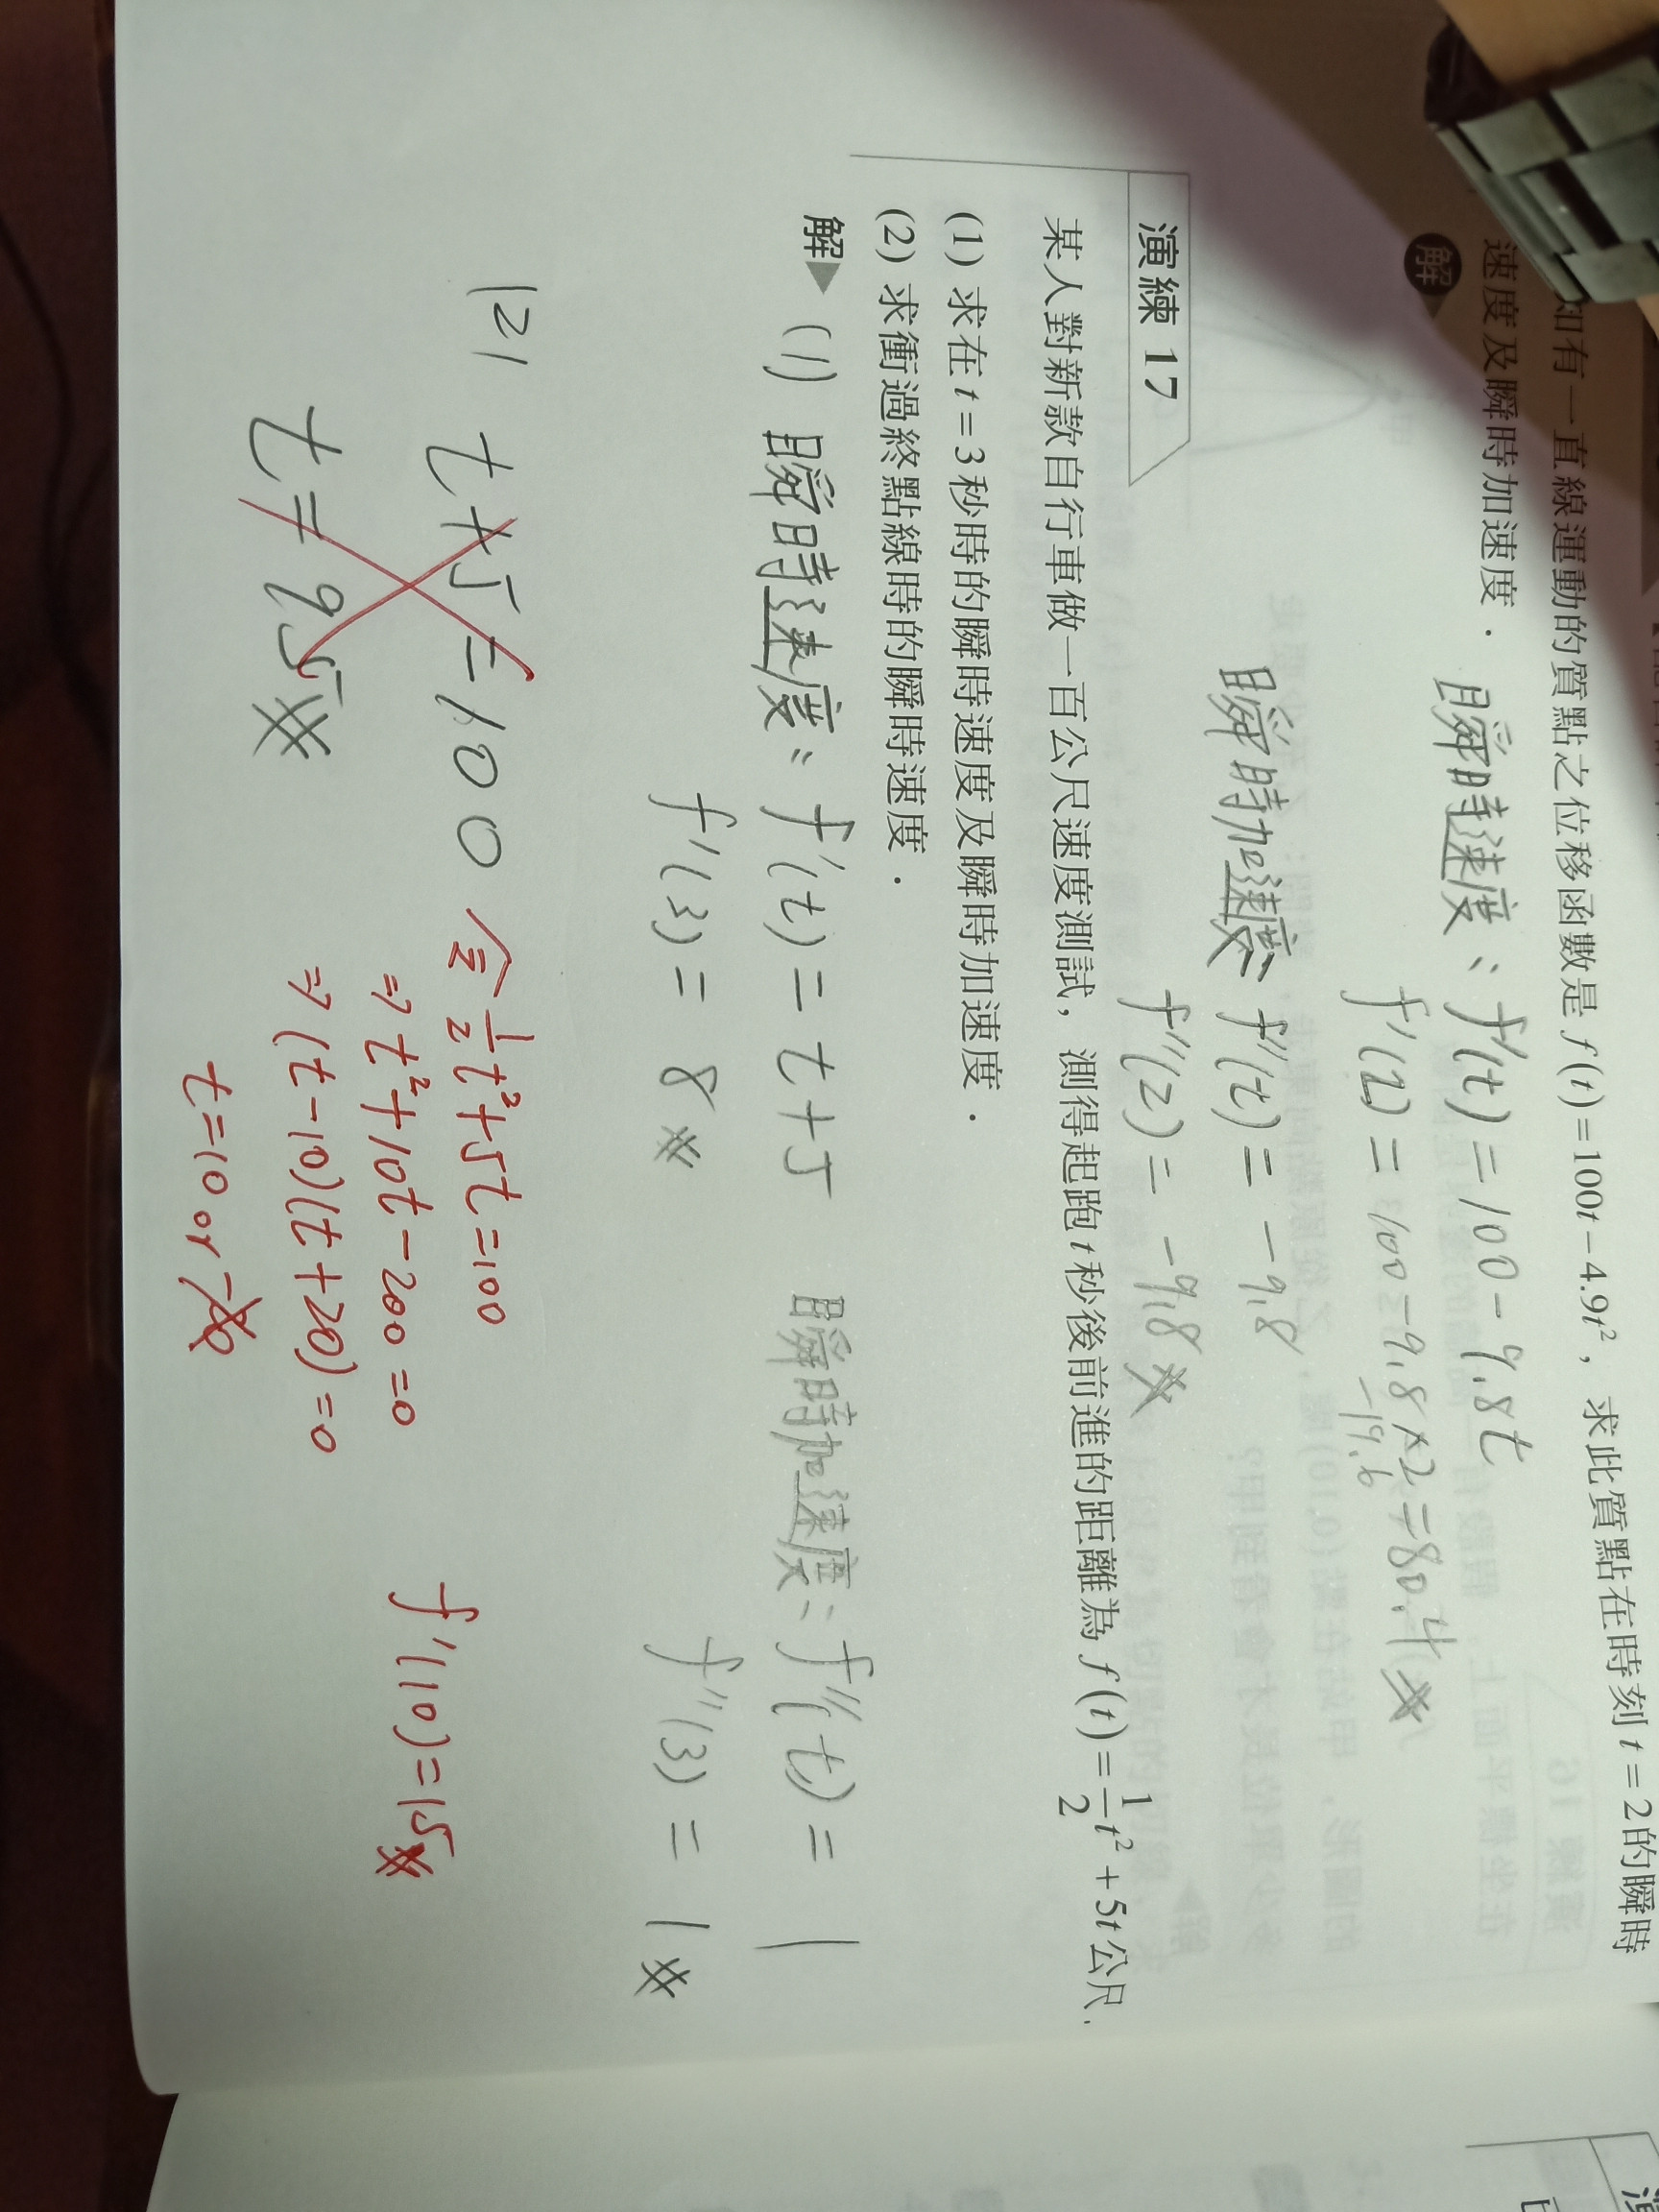 知有一直線運動的質點之位移函數是 f(t)=100t-4.9t², 求此質點在時刻 t=2 的瞬時
速度及瞬時加速度.
解
瞬時速度: f'(t)=100-9.8t
f'(2)=100-9.8×2=80.4
-19.6
瞬時加速度: f''(t)=-9.8
f''(2)=-9.8
演練 17
某人對新款自行車做一百公尺速度測試, 測得起跑 t 秒後前進的距離為 f(t)=1/2t²+5t 公尺.
(1) 求在 t=3 秒時的瞬時速度及瞬時加速度.
(2) 求衝過終點線時的瞬時速度.
解 (1) 瞬時速度: f'(t)=t+5 瞬時加速度: f''(t)=1
f'(3)=8 f''(3)=1
(2) t+5=100
t=95
令 1/2t²+5t=100
⇒ t²+10t-200=0
⇒ (t-10)(t+20)=0
t=10 or -20
f'(10)=15